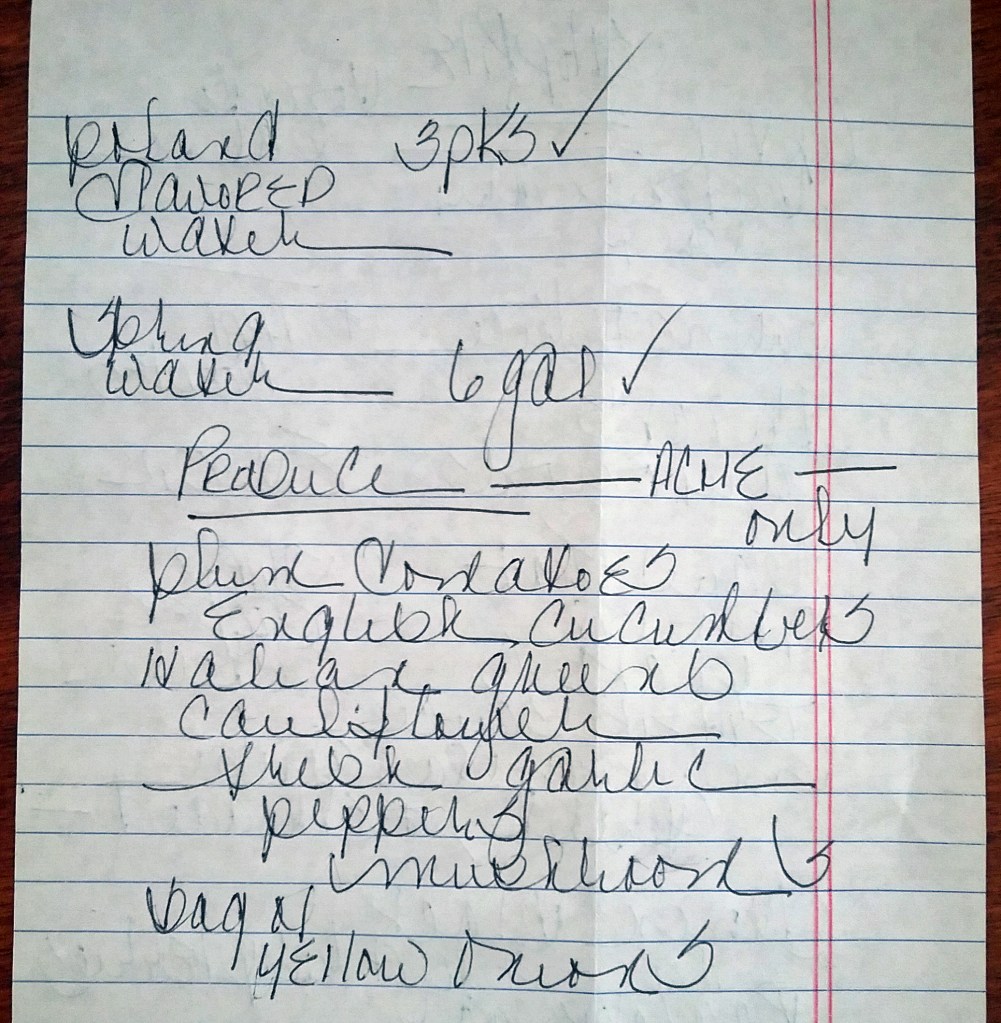 poland 3pks ✓
flavored
water
Spring
water 6 gal ✓
Produce — ACME —
only
plum tomatoes
English cucumbers
Italian greens
cauliflower
fresh garlic
peppers
mushrooms
bag of
yellow onions